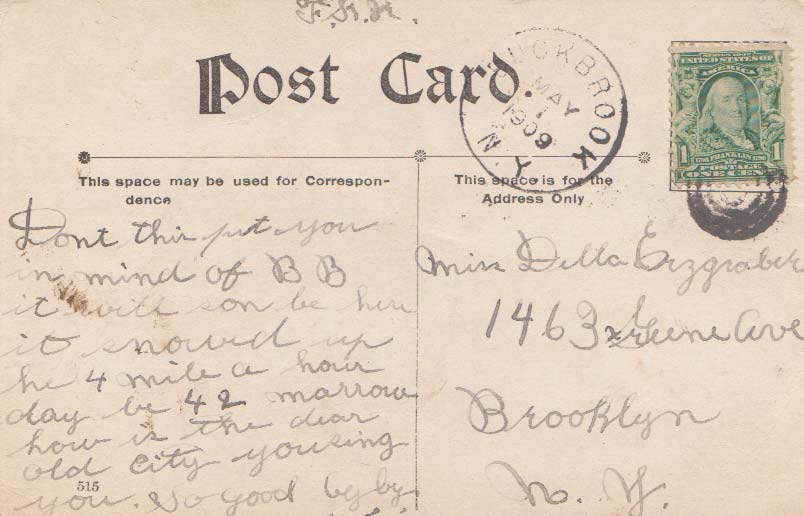 F. R. R.
Post Card.
BROOK
MAY
1
1909
N. Y.
SERIES 1902
UNITED STATES OF
AMERICA
1 FRANKLIN 1
POSTAGE
ONE CENT
This space may be used for Correspon-
dence
This space is for the
Address Only
Dont this put you
in mind of B B
it will son be here
it snowed up
he 4 mile a hour
day be 42 marrow
how is the dear
old city yousing
you. So good by by
515
Miss Della Erzgraber
1463 Greene Ave
Brooklyn
N. Y.